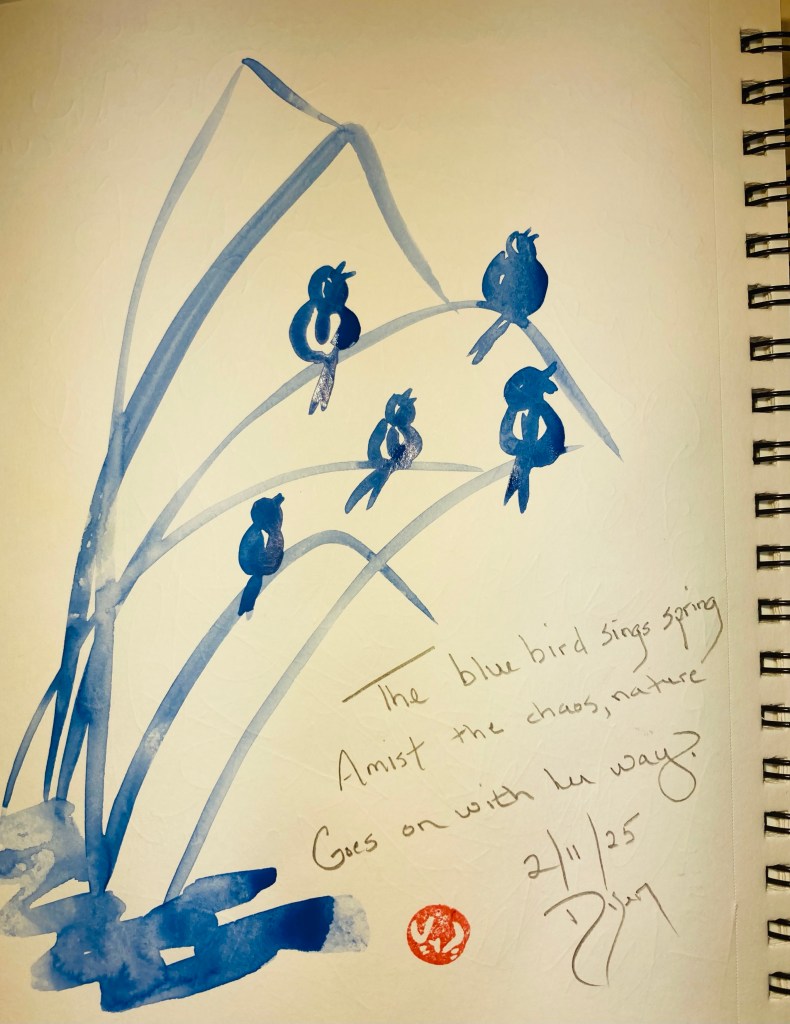 The blue bird sings spring
Amist the chaos, nature
Goes on with her way.
2/11/25